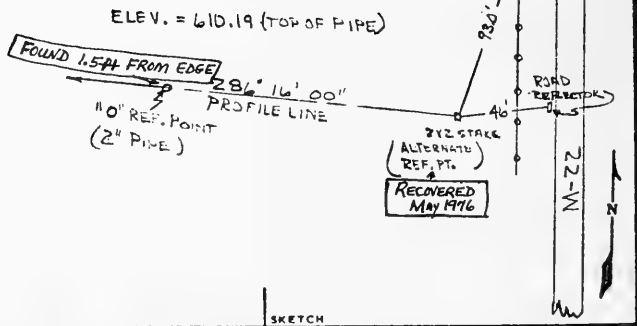 ELEV. = 610.19 (TOP OF PIPE)
930'
FOUND 1.5 ft FROM EDGE
286° 16' 00"
PROFILE LINE
"0" REF. POINT
(2" PIPE)
46'
ROAD
REFLECTOR
2X2 STAKE
(ALTERNATE
REF. PT.)
RECOVERED
MAY 1976
M-22
N
SKETCH